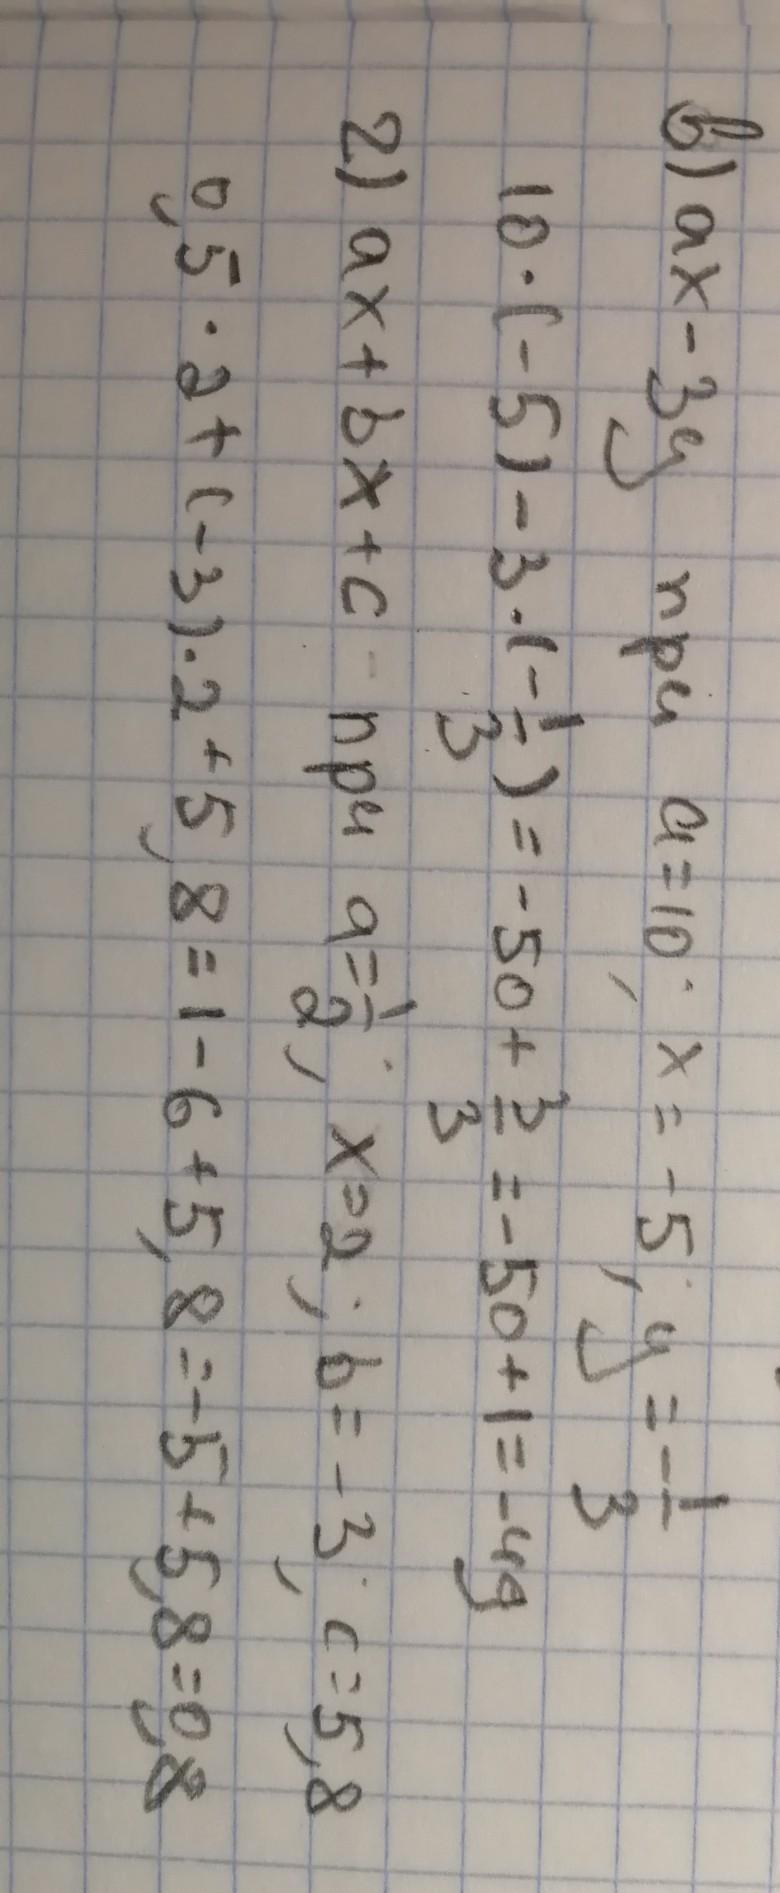 в) ax - 3y при a = 10; x = -5; y = -1/3
10 · (-5) - 3 · (-1/3) = -50 + 3/3 = -50 + 1 = -49
2) ax + bx + c при a = 1/2; x = 2; b = -3; c = 5,8
0,5 · 2 + (-3) · 2 + 5,8 = 1 - 6 + 5,8 = -5 + 5,8 = 0,8